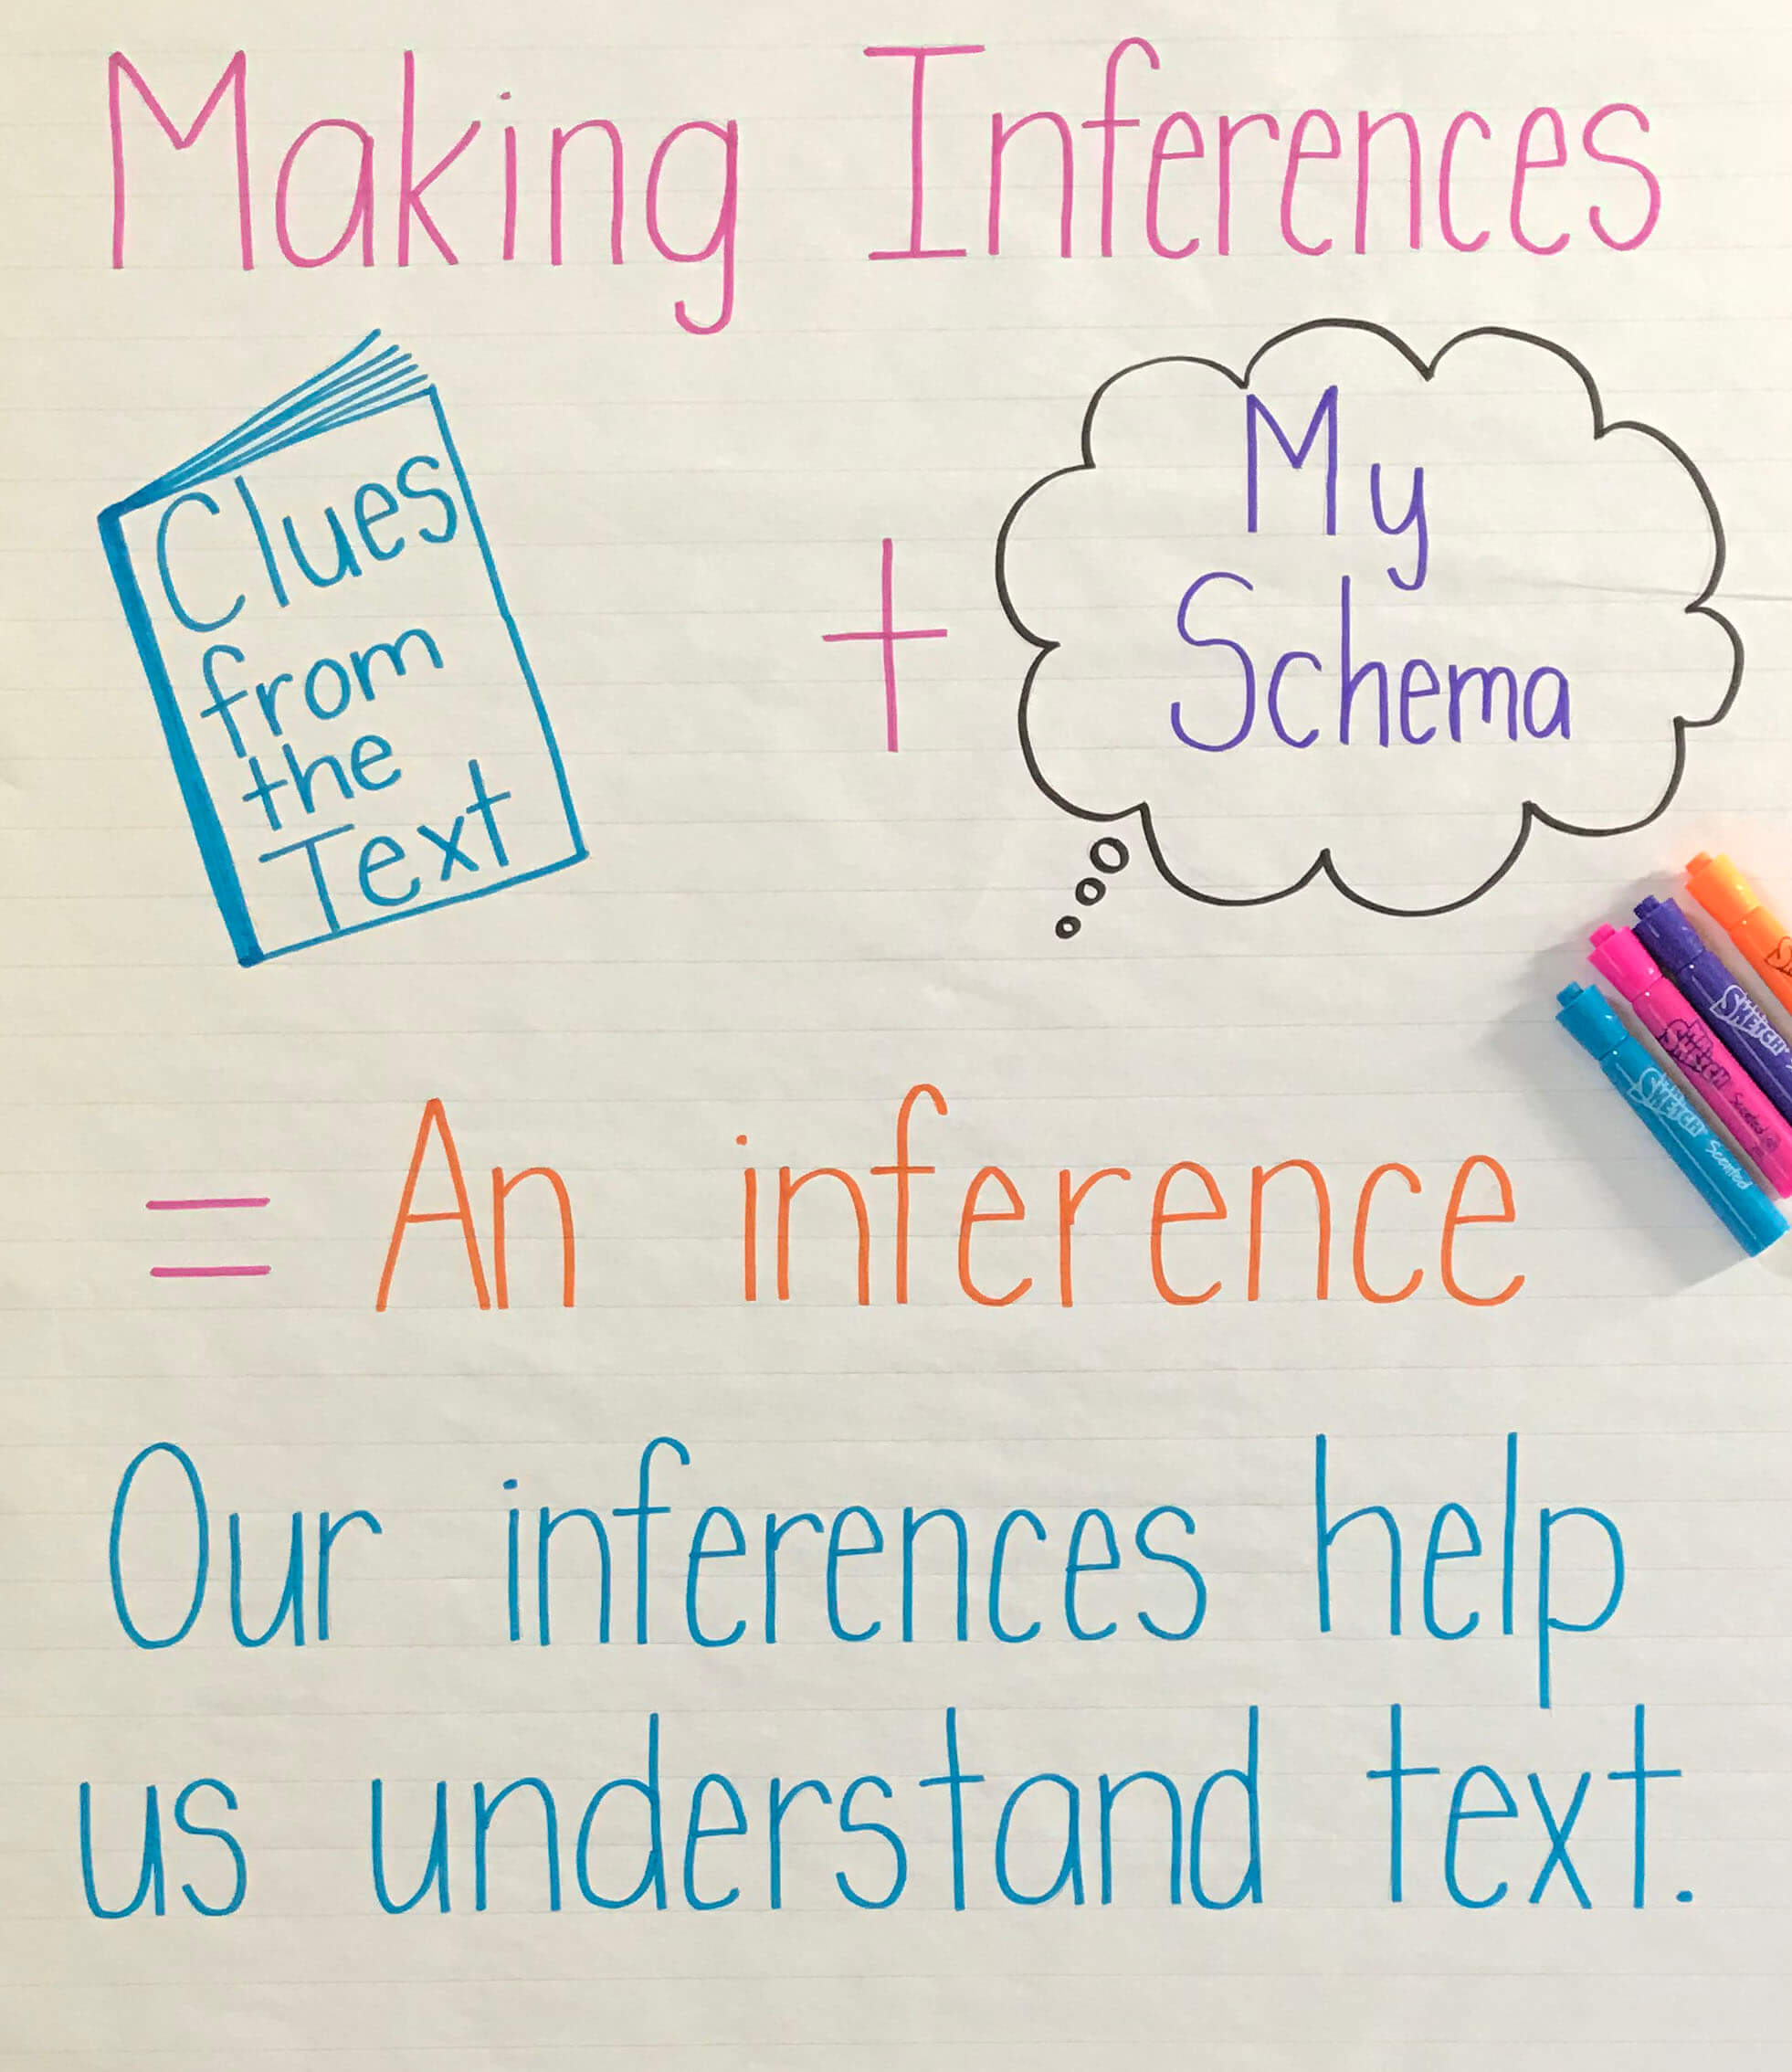 Making Inferences
Clues
from
the
Text
+
My
Schema
= An inference
Our inferences help
us understand text.
SKETCH
SKETCH Scented
SKETCH Scented